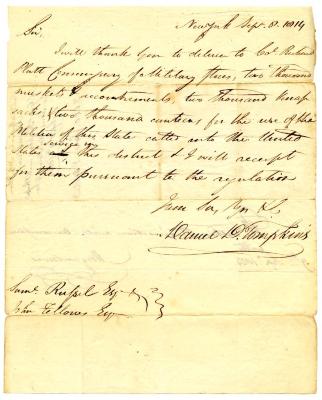 New York Sept. 8. 1814
Sir,
I will thank you to deliver to Col. Richard
Platt Commissary of Military Stores, two thousand
muskets & accoutrements, two thousand knap
sacks, & two thousand canteens for the use of the
Militia of this State called into the United
service in
States this district & I will receipt
for them pursuant to the regulation
I am Sir, Yr. &.
Daniel D. Tompkins
Saml. Russel Esq &
John Fellows Esq